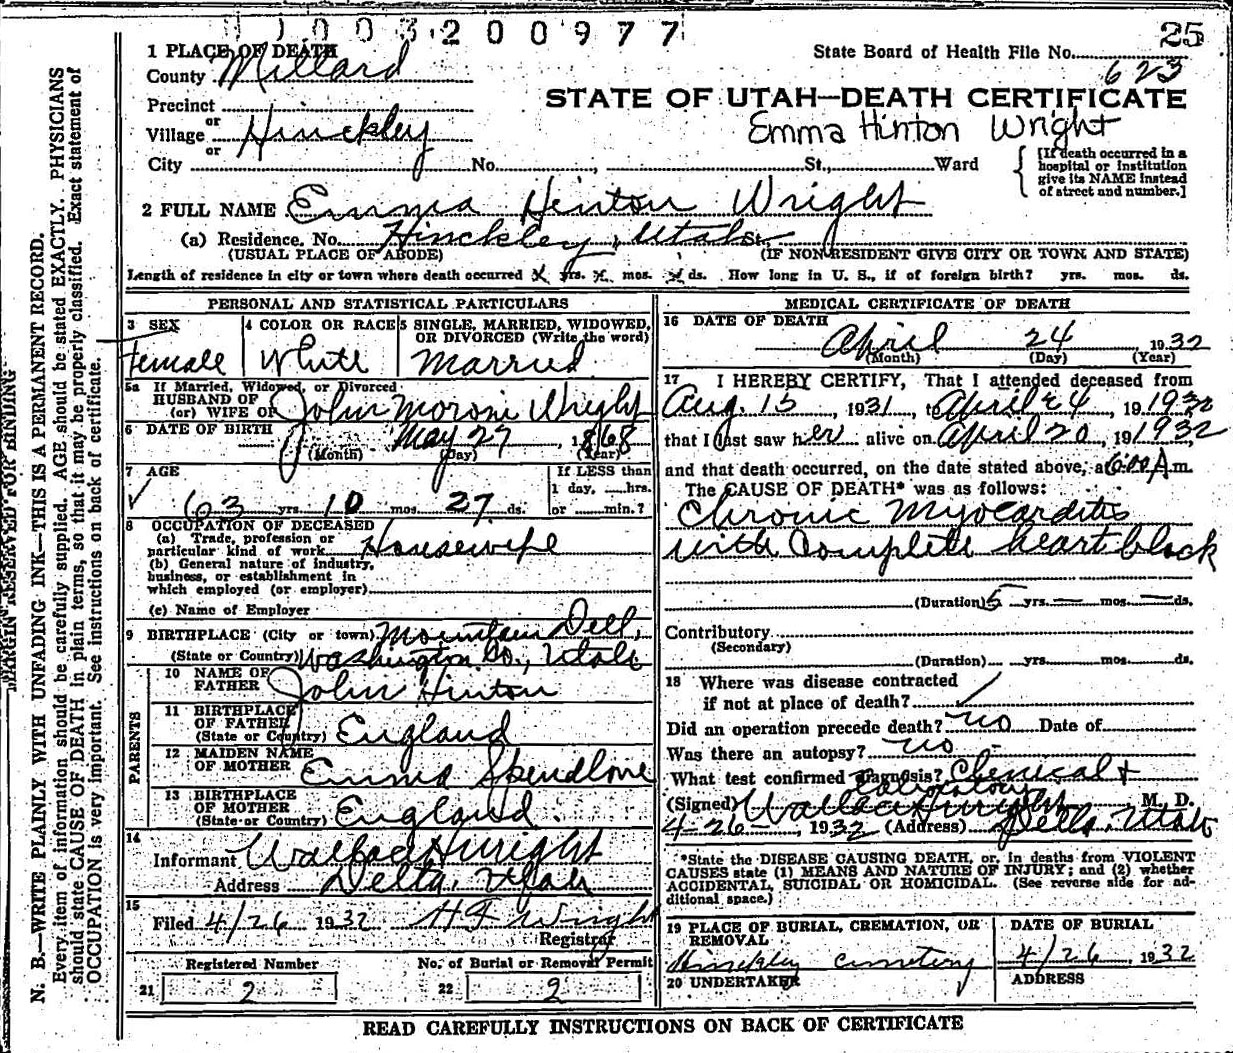 1003200977
25
1 PLACE OF DEATH
State Board of Health File No.
County Millard
623
Precinct
STATE OF UTAH—DEATH CERTIFICATE
or
Village Hinckley
Emma Hinton Wright
or
City No. St., Ward
[If death occurred in a
hospital or institution
give its NAME instead
of street and number.]
2 FULL NAME Emma Hinton Wright
(a) Residence. No. Hinckley, Utah St.,
(USUAL PLACE OF ABODE) (IF NON-RESIDENT GIVE CITY OR TOWN AND STATE)
Length of residence in city or town where death occurred yrs. mos. ds. How long in U. S., if of foreign birth? yrs. mos. ds.
PERSONAL AND STATISTICAL PARTICULARS
3 SEX
Female
4 COLOR OR RACE
White
5 SINGLE, MARRIED, WIDOWED,
OR DIVORCED (Write the word)
Married
5a If Married, Widowed, or Divorced
HUSBAND OF
(or) WIFE OF John Moroni Wright
6 DATE OF BIRTH May 27, 1868
(Month) (Day) (Year)
7 AGE
63 yrs. 10 mos. 27 ds.
If LESS than
1 day, hrs.
or min.?
8 OCCUPATION OF DECEASED
(a) Trade, profession or
particular kind of work Housewife
(b) General nature of industry,
business, or establishment in
which employed (or employer)
(c) Name of Employer
9 BIRTHPLACE (City or town) Mountain Dell,
(State or Country) Washington Co., Utah
PARENTS
10 NAME OF
FATHER John Hinton
11 BIRTHPLACE
OF FATHER
(State or Country) England
12 MAIDEN NAME
OF MOTHER Emma Spendlove
13 BIRTHPLACE
OF MOTHER
(State or Country) England
14
Informant
Address Delta, Utah
15
Filed 4/26 1932 H F Wright
Registrar
Registered Number
21 2
No. of Burial or Removal Permit
22 2
MEDICAL CERTIFICATE OF DEATH
16 DATE OF DEATH
April 24, 1932
(Month) (Day) (Year)
17 I HEREBY CERTIFY, That I attended deceased from
Aug. 15, 1931, to April 24, 19 1932
that I last saw her alive on April 20, 19 1932
and that death occurred, on the date stated above, at 6:00 A.m.
The CAUSE OF DEATH* was as follows:
Chronic Myocarditis
with Complete heart block
(Duration) 5 yrs. — mos. — ds.
Contributory
(Secondary)
(Duration) yrs. mos. ds.
18 Where was disease contracted
if not at place of death?
Did an operation precede death? no Date of
Was there an autopsy? no
What test confirmed diagnosis? &
Laboratory
(Signed) M. D.
4-26-, 1932 (Address) Delta, Utah
*State the DISEASE CAUSING DEATH, or, in deaths from VIOLENT
CAUSES state (1) MEANS AND NATURE OF INJURY; and (2) whether
ACCIDENTAL, SUICIDAL OR HOMICIDAL. (See reverse side for ad-
ditional space.)
19 PLACE OF BURIAL, CREMATION, OR
REMOVAL
Hinckley Cemetery
DATE OF BURIAL
4/26, 1932
20 UNDERTAKER
ADDRESS
READ CAREFULLY INSTRUCTIONS ON BACK OF CERTIFICATE
MARGIN RESERVED FOR BINDING
N. B.—WRITE PLAINLY WITH UNFADING INK—THIS IS A PERMANENT RECORD.
Every item of information should be carefully supplied. AGE should be stated EXACTLY. PHYSICIANS
should state CAUSE OF DEATH in plain terms, so that it may be properly classified. Exact statement of
OCCUPATION is very important. See instructions on back of certificate.